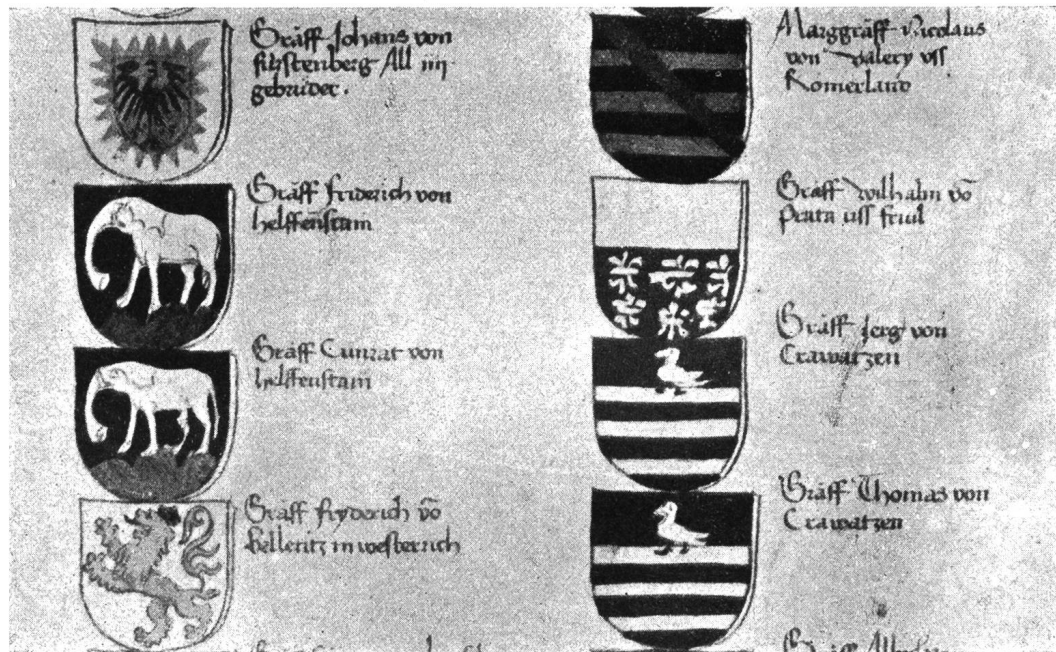 Gräff Johans von
fürstenberg All iiij
gebrüder.
Gräff friderich von
helffenstam
Gräff Cunrat von
helffenstam
Gräff fryderich vō
Bellentz in westerrich
Marggräff Nicolaus
von valery uss
Römerland
Gräff wilhalm vō
prata uss friul
Gräff Jerg von
Crawatzen
Gräff Thomas von
Crawatzen
Gräff